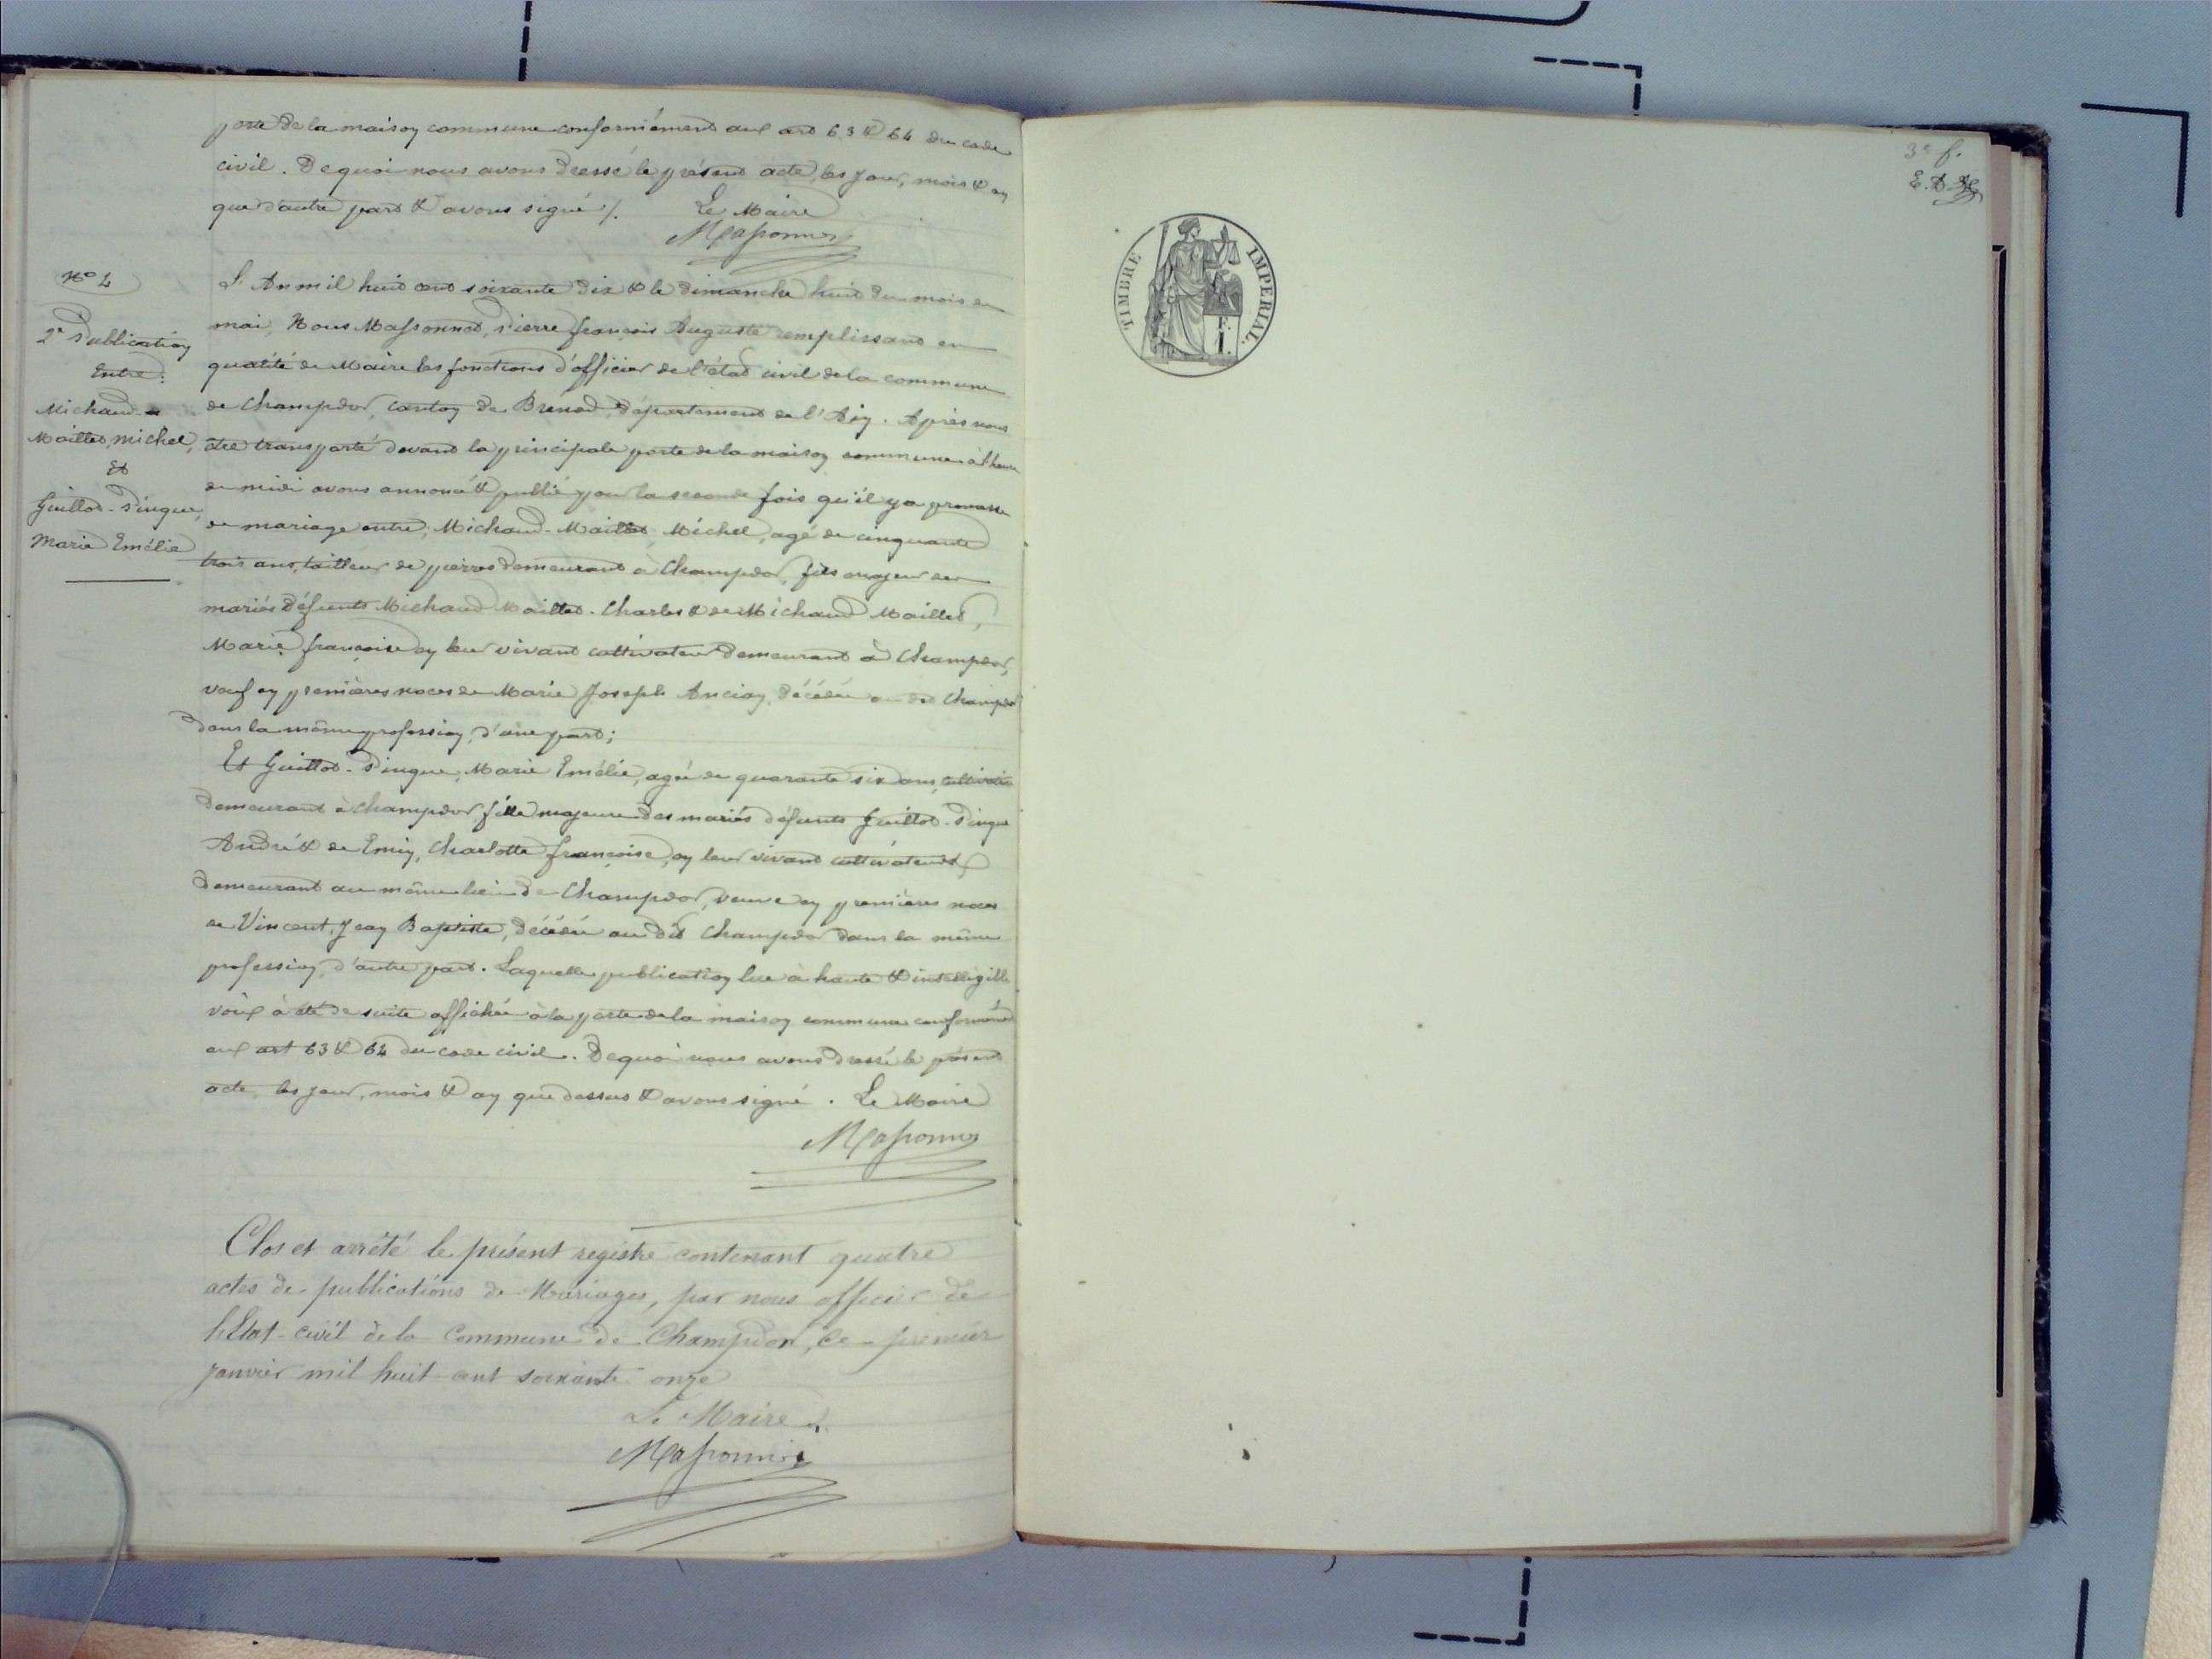 porte de la maison commune conformément aux art 63 & 64 du code
civil. De quoi nous avons dressé le présent acte, les jour, mois & an
que d'autre part & avons signé /. Le Maire
Massonnet
N° 4
2e Publication
Entre:
Michaud
Maillet, Michel,
Et
Guillot-Pingue,
Marie Emélie
L'An mil huit cent soixante dix & le dimanche huit du mois de
mai, Nous Massonnet, Pierre françois Auguste remplissant en
qualité de Maire les fonctions d'officier de l'état civil de la commune
de Champdor, canton de Brénod, département de l'Ain. Après nous
être transporté devant la principale porte de la maison commune à l'heure
de midi avons annoncé & publié pour la seconde fois qu'il y a promesse
de mariage entre, Michaud-Maillet, Michel, agé de cinquante
trois ans, tailleur de pierres demeurant à Champdor, fils majeur des
mariés défunts Michaud Maillet. Charles & de Michaud Maillet,
Marie françoise en leur vivant cultivateur demeurant à Champdor,
veuf en premières noces de Marie Joseph Ancian, décédée au dit Champdor
dans la même profession, d'une part;
Et Guillot-Pingue, Marie Emélie, agée de quarante six ans,
demeurant à Champdor, fille majeure des mariés défunts Guillot-Pingue
André & de Emin, Charlotte françoise, en leur vivant cultivateurs
demeurant au même lieu de Champdor, veuve en premières noces
de Vincent, Jean Baptiste, décédée au dit Champdor dans la même
profession, d'autre part. Laquelle publication lue à haute & intelligible
voix à été de suite affichée à la porte de la maison commune conformément
aux art 63 & 64 du code civil. De quoi nous avons dressé le présent
acte, les jour, mois & an que dessus & avons signé. Le Maire
Massonnet
Clos et arrêté le présent registre contenant quatre
actes de publications de Mariages, par nous officier de
l'Etat-civil de la Commune de Champdor, ce premier
janvier mil huit-cent soixante onze
Le Maire
Massonnet
3e f.
E. D.
TIMBRE IMPERIAL.